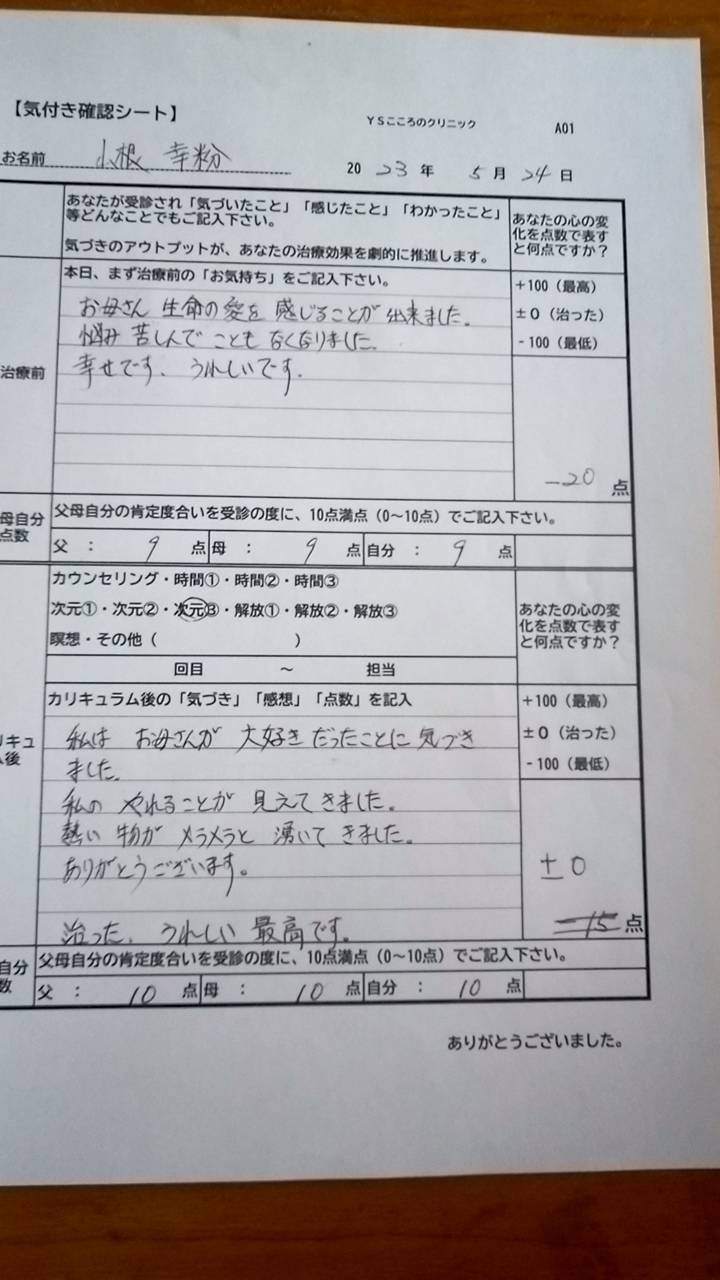 【気付き確認シート】
YSこころのクリニック
A01
お名前 小根 幸粉
2023年 5月 24日
あなたが受診され「気づいたこと」「感じたこと」「わかったこと」
等どんなことでもご記入下さい。
気づきのアウトプットが、あなたの治療効果を劇的に推進します。
あなたの心の変
化を点数で表す
と何点ですか？
本日、まず治療前の「お気持ち」をご記入下さい。
+100（最高）
±0（治った）
-100（最低）
治療前
お母さん 生命の愛を 感じることが 出来ました。
悩み 苦しんで こともなくなりました。
幸せです、うれしいです.
-20 点
母自分
点数
父母自分の肯定度合いを受診の度に、10点満点（0～10点）でご記入下さい。
父： 9 点 母： 9 点 自分： 9 点
カウンセリング・時間①・時間②・時間③
次元①・次元②・次元③・解放①・解放②・解放③
瞑想・その他（ ）
あなたの心の変
化を点数で表す
と何点ですか？
回目 ～ 担当
カリキュラム後の「気づき」「感想」「点数」を記入
+100（最高）
±0（治った）
-100（最低）
リキュ
ム後
私は お母さんが 大好き だったことに 気づき
ました。
私の やれることが 見えて きました。
熱い 物が メラメラと 湧いて きました。
ありがとうございます。
治った、うれしい 最高です。
±0
-15 点
自分
数
父母自分の肯定度合いを受診の度に、10点満点（0～10点）でご記入下さい。
父： 10 点 母： 10 点 自分： 10 点
ありがとうございました。